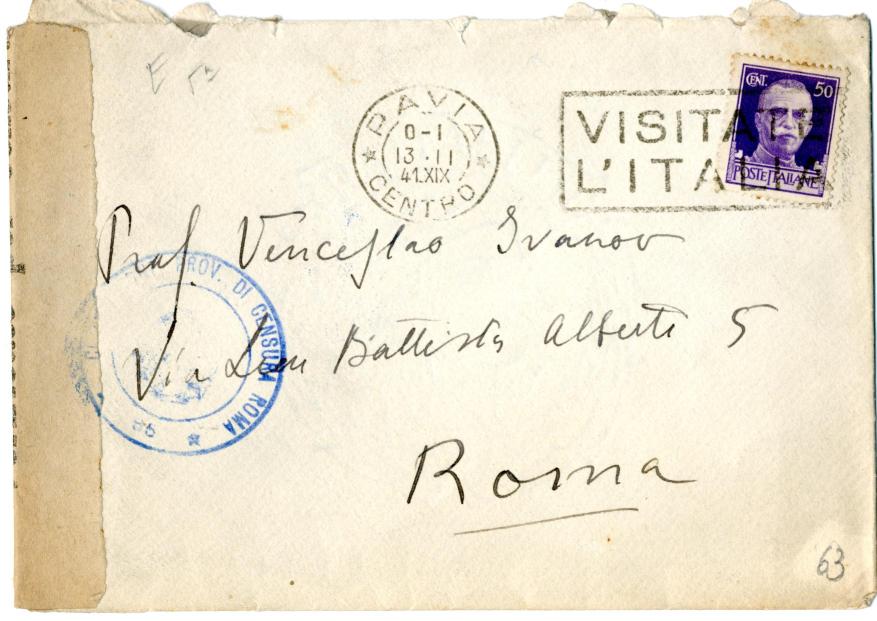 E
PAVIA
0-1
13·II
41.XIX
CENTRO
VISITATE
L'ITALIA
CENT. 50
POSTE ITALIANE
Prof. Venceslao Ivanov
Via Leon Battista Alberti 5
Roma
PROV. DI CENSURA ROMA
63